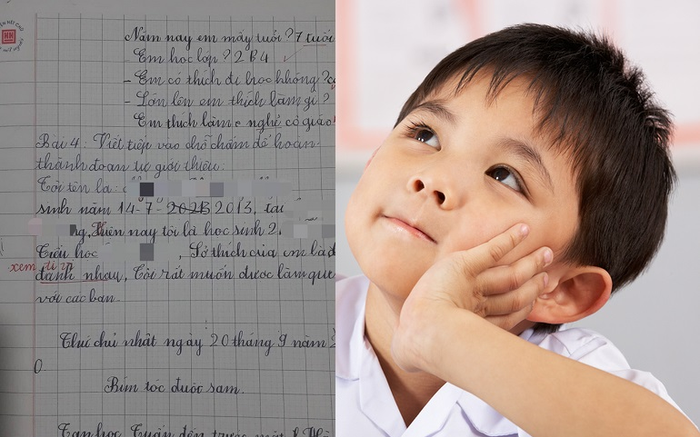 Năm nay em mấy tuổi? 7 tuổi
Em học lớp? 2B4
- Em có thích đi học không?
- Lớn lên em thích làm gì?
Em thích làm nghề cô giáo
Bài 4: Viết tiếp vào chỗ chấm để hoàn
thành đoạn tự giới thiệu:
Tôi tên là:
sinh năm 14-7- 2013, tại
Hiện nay tôi là học sinh 2
Tiểu học , Sở thích của em là đ
xem ti vi
đánh nhau, Tôi rất muốn được làm que
với các bạn.
Thứ chủ nhật ngày 20 tháng 9 năm 2
0.
Bím tóc đuôi sam.
Tan học, Tuấn đến trước